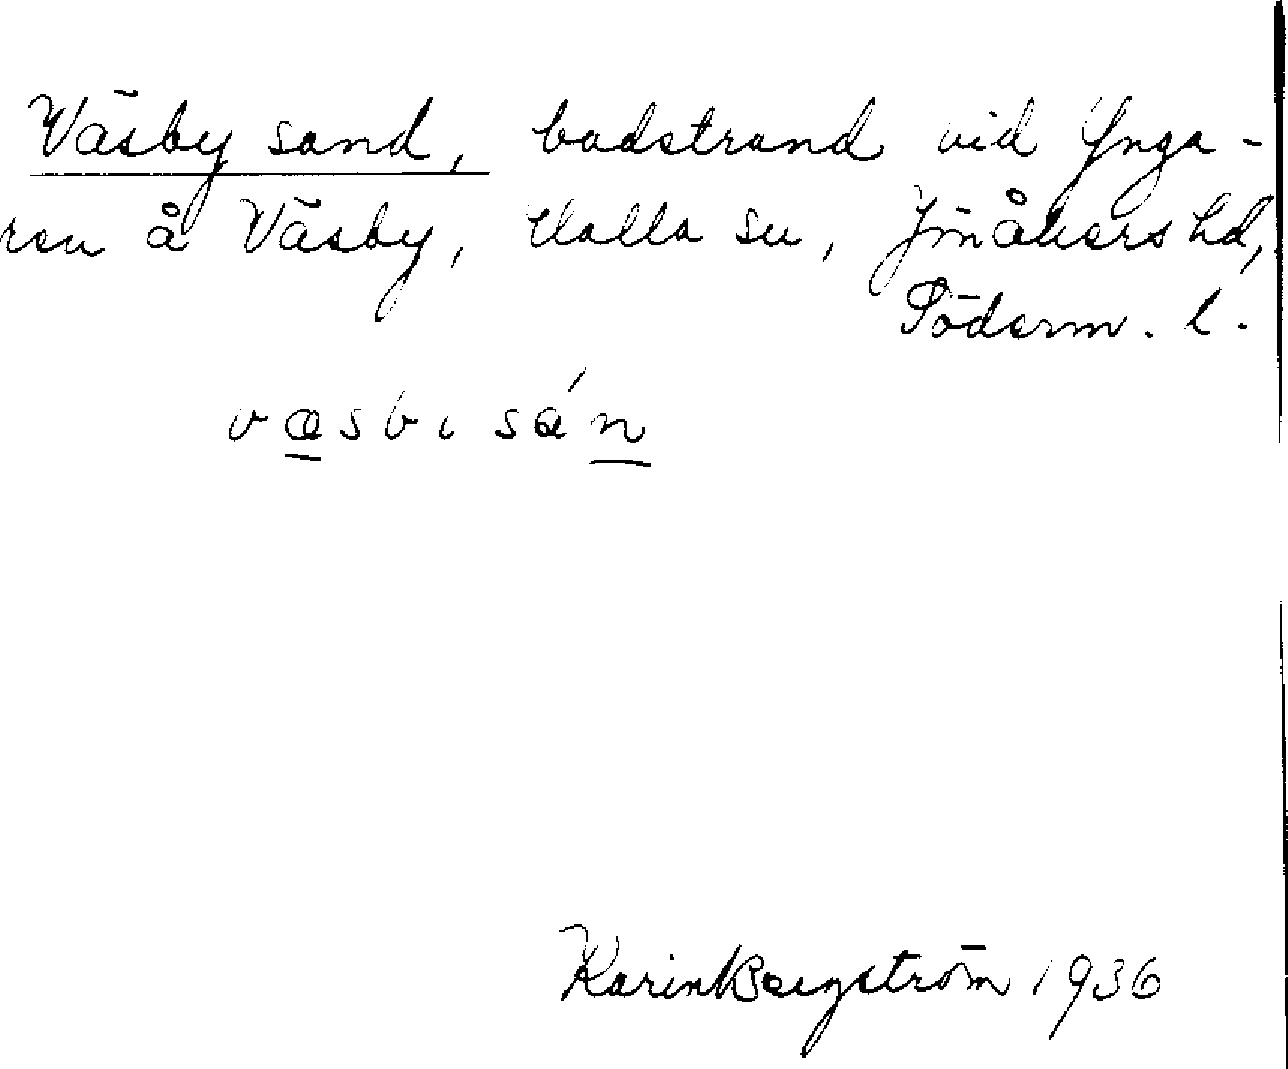 Väsby sand, badstrand vid Ynga-
ren å Väsby, Halla sn, Jönåkers hd,
Söderm. l.
væsbi sán
Karin Bergström 1936